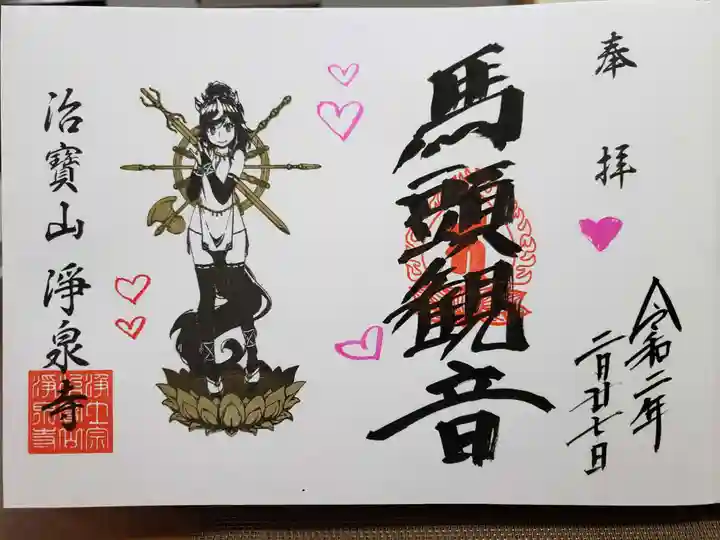 奉拝
令和二年
二月廿七日
馬頭観音
治寶山淨泉寺
浄土宗
淨泉寺